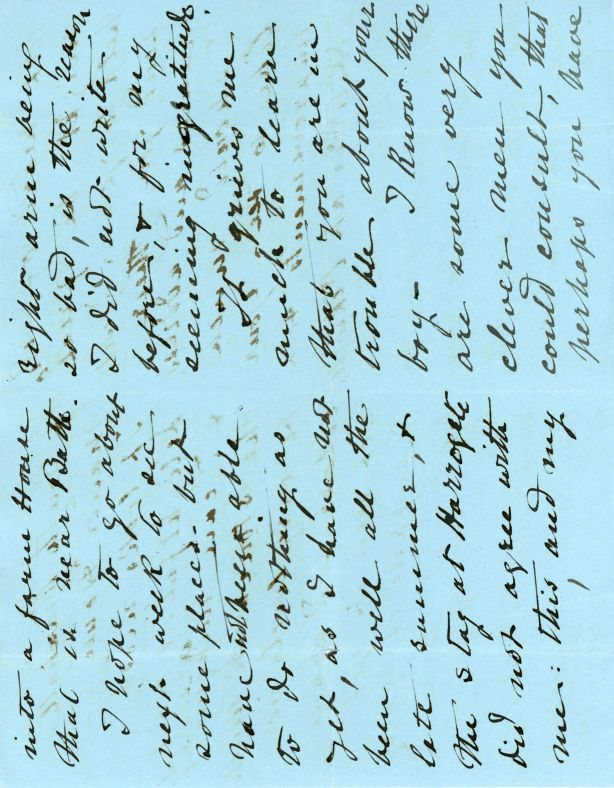 into a farm House
that is near Bath.
I hope to go about
next week to see
some place - but
have not been able
to do nothing as
yet, as I have not
been well all the
late summer, &
the stay at Harrogate
did not agree with
me: this, and my
right arm being
so bad, is the reason
I did not write
before, & for my
seeming ingratitude.
It grieves me
much to learn
that you are in
trouble about your
boy - I know there
are some very
clever men you
could consult, that
perhaps you have